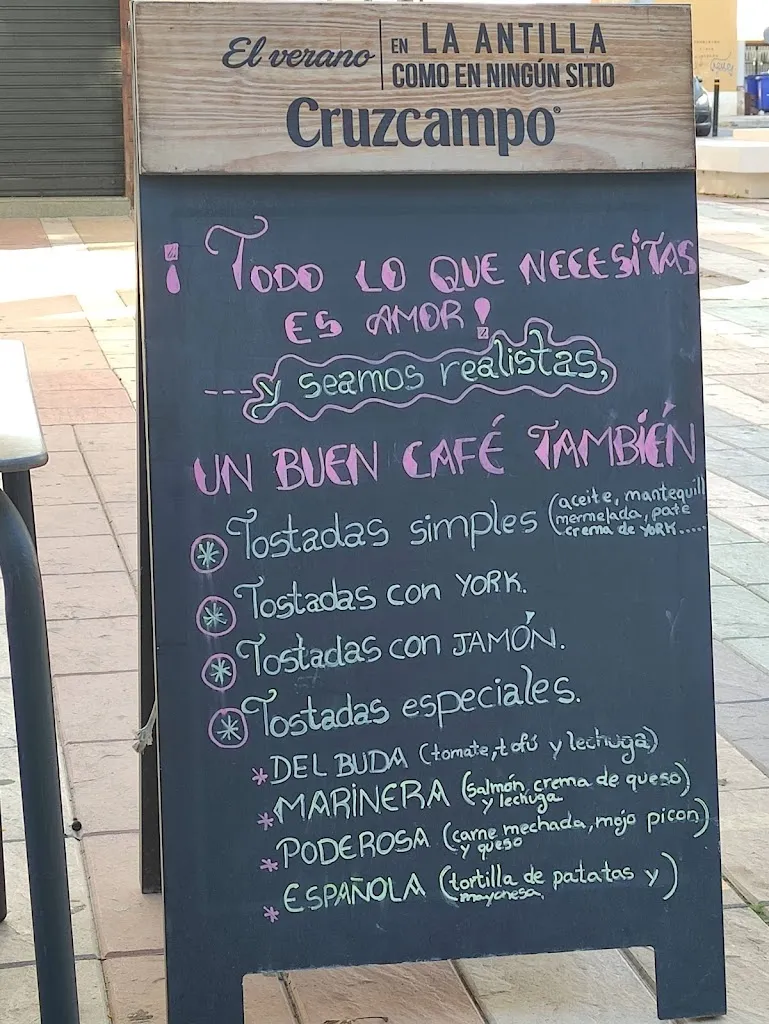 El verano
EN LA ANTILLA
COMO EN NINGÚN SITIO
Cruzcampo®
¡TODO LO QUE NECESITAS
ES AMOR!
---y seamos realistas,
UN BUEN CAFÉ TAMBIÉN
* Tostadas simples (aceite, mantequill
mermelada, paté
crema de YORK.....
* Tostadas con YORK.
* Tostadas con JAMÓN.
* Tostadas especiales.
* DEL BUDA (tomate, tofú y lechuga)
* MARINERA (salmón, crema de queso)
y lechuga
* PODEROSA (carne mechada, mojo picon)
y queso
* ESPAÑOLA (tortilla de patatas y)
mayonesa,